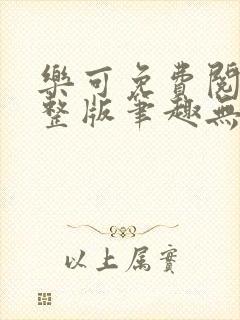 樂可免費閱
整版筆趣無
以上属實